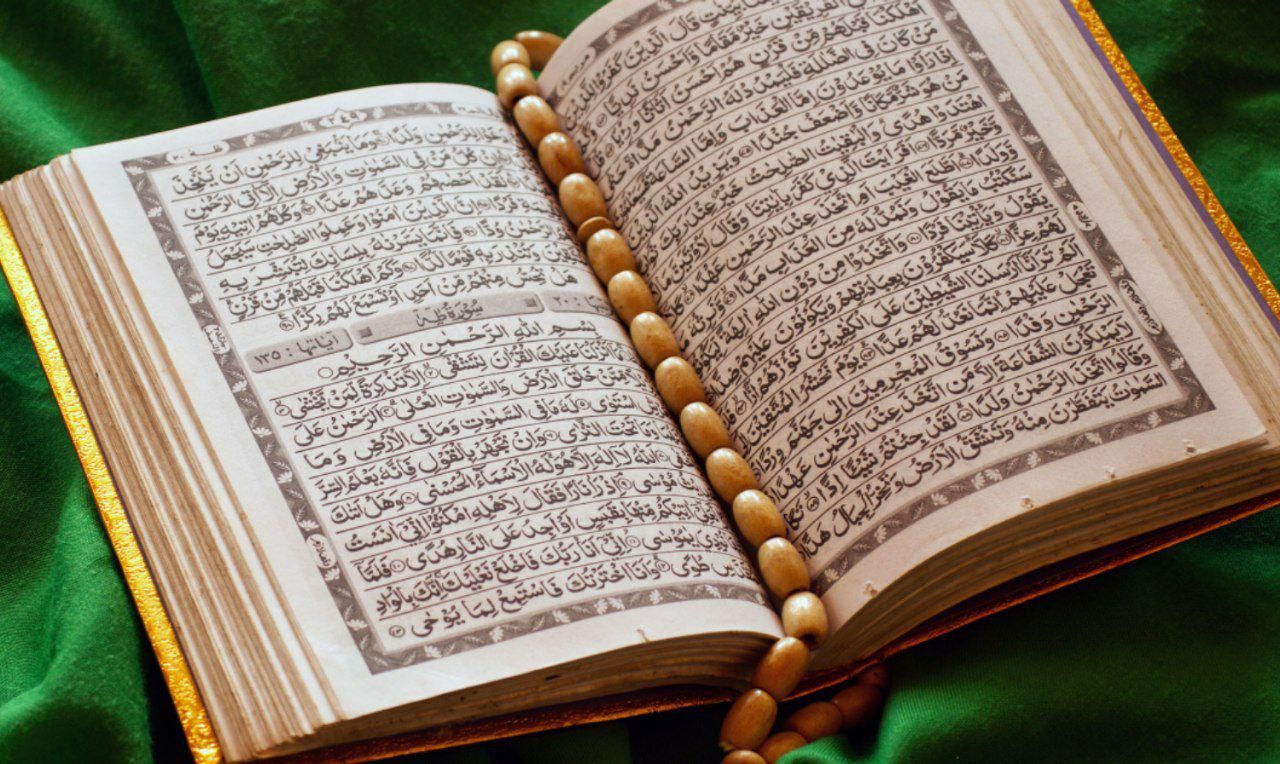 الْفَرِيْقَيْنِ خَيْرٌ مَّقَامًا وَّاَحْسَنُ نَدِيًّا
اَهْلَكْنَا قَبْلَهُمْ مِّنْ قَرْنٍ هُمْ اَحْسَنُ اَثَاثًا وَّرِءْيًا
مَنْ كَانَ فِى الضَّلٰلَةِ فَلْيَمْدُدْ لَهُ الرَّحْمٰنُ مَدًّا
اِذَا رَاَوْا مَا يُوْعَدُوْنَ اِمَّا الْعَذَابَ وَاِمَّا السَّاعَةَ
مَنْ هُوَ شَرٌّ مَّكَانًا وَّاَضْعَفُ جُنْدًا وَيَزِيْدُ اللّٰهُ الَّذِيْنَ
اهْتَدَوْا هُدًى وَالْبٰقِيٰتُ الصّٰلِحٰتُ خَيْرٌ عِنْدَ رَبِّكَ
وَّخَيْرٌ مَّرَدًّا اَفَرَءَيْتَ الَّذِيْ كَفَرَ بِاٰيٰتِنَا وَقَالَ لَاُوْتَيَنَّ
وَّوَلَدًا اَطَّلَعَ الْغَيْبَ اَمِ اتَّخَذَ عِنْدَ الرَّحْمٰنِ عَهْدًا كَلَّا
سَنَكْتُبُ مَا يَقُوْلُ وَنَمُدُّ لَهٗ مِنَ الْعَذَابِ مَدًّا وَّنَرِثُهٗ
يَقُوْلُ وَيَاْتِيْنَا فَرْدًا وَاتَّخَذُوْا مِنْ دُوْنِ اللّٰهِ اٰلِهَةً لِّيَكُوْنُوْا
لَهُمْ عِزًّا كَلَّا سَيَكْفُرُوْنَ بِعِبَادَتِهِمْ وَيَكُوْنُوْنَ عَلَيْهِمْ ضِدًّا
اَلَمْ تَرَ اَنَّا اَرْسَلْنَا الشَّيٰطِيْنَ عَلَى الْكٰفِرِيْنَ تَؤُزُّهُمْ اَزًّا
تَعْجَلْ عَلَيْهِمْ اِنَّمَا نَعُدُّ لَهُمْ عَدًّا يَوْمَ نَحْشُرُ الْمُتَّقِيْنَ
الرَّحْمٰنِ وَفْدًا وَّنَسُوْقُ الْمُجْرِمِيْنَ اِلٰى جَهَنَّمَ وِرْدًا
لَا يَمْلِكُوْنَ الشَّفَاعَةَ اِلَّا مَنِ اتَّخَذَ عِنْدَ الرَّحْمٰنِ عَهْدًا
وَقَالُوا اتَّخَذَ الرَّحْمٰنُ وَلَدًا لَقَدْ جِئْتُمْ شَيْئًا اِدًّا تَكَادُ
السَّمٰوٰتُ يَتَفَطَّرْنَ مِنْهُ وَتَنْشَقُّ الْاَرْضُ وَتَخِرُّ الْجِبَالُ هَدًّا
لِلرَّحْمٰنِ وَلَدًا وَمَا يَنْبَغِيْ لِلرَّحْمٰنِ اَنْ يَّتَّخِذَ
اِنْ كُلُّ مَنْ فِى السَّمٰوٰتِ وَالْاَرْضِ اِلَّا اٰتِى الرَّحْمٰنِ
لَقَدْ اَحْصٰىهُمْ وَعَدَّهُمْ عَدًّا وَكُلُّهُمْ اٰتِيْهِ يَوْمَ
فَرْدًا اِنَّ الَّذِيْنَ اٰمَنُوْا وَعَمِلُوا الصّٰلِحٰتِ سَيَجْعَلُ
الرَّحْمٰنُ وُدًّا فَاِنَّمَا يَسَّرْنٰهُ بِلِسَانِكَ لِتُبَشِّرَ بِهِ
وَتُنْذِرَ بِهٖ قَوْمًا لُّدًّا وَكَمْ اَهْلَكْنَا قَبْلَهُمْ مِّنْ قَرْنٍ
هَلْ تُحِسُّ مِنْهُمْ مِّنْ اَحَدٍ اَوْ تَسْمَعُ لَهُمْ رِكْزًا
سُوْرَةُ طٰهٰ
اٰيَاتُهَا : ١٣٥
بِسْمِ اللّٰهِ الرَّحْمٰنِ الرَّحِيْمِ
اَنْزَلْنَا عَلَيْكَ الْقُرْاٰنَ لِتَشْقٰى اِلَّا تَذْكِرَةً لِّمَنْ يَّخْشٰى
مِّمَّنْ خَلَقَ الْاَرْضَ وَالسَّمٰوٰتِ الْعُلٰى اَلرَّحْمٰنُ عَلَى
اسْتَوٰى لَهٗ مَا فِى السَّمٰوٰتِ وَمَا فِى الْاَرْضِ وَمَا
وَمَا تَحْتَ الثَّرٰى وَاِنْ تَجْهَرْ بِالْقَوْلِ فَاِنَّهٗ يَعْلَمُ السِّرَّ
اَللّٰهُ لَا اِلٰهَ اِلَّا هُوَ لَهُ الْاَسْمَاءُ الْحُسْنٰى وَهَلْ اَتٰىكَ
مُوْسٰى اِذْ رَاٰ نَارًا فَقَالَ لِاَهْلِهِ امْكُثُوْا اِنِّيْ اٰنَسْتُ
اٰتِيْكُمْ مِّنْهَا بِقَبَسٍ اَوْ اَجِدُ عَلَى النَّارِ هُدًى فَلَمَّا
نُوْدِيَ يٰمُوْسٰى اِنِّيْ اَنَا رَبُّكَ فَاخْلَعْ نَعْلَيْكَ اِنَّكَ بِالْوَادِ
طُوًى وَاَنَا اخْتَرْتُكَ فَاسْتَمِعْ لِمَا يُوْحٰى